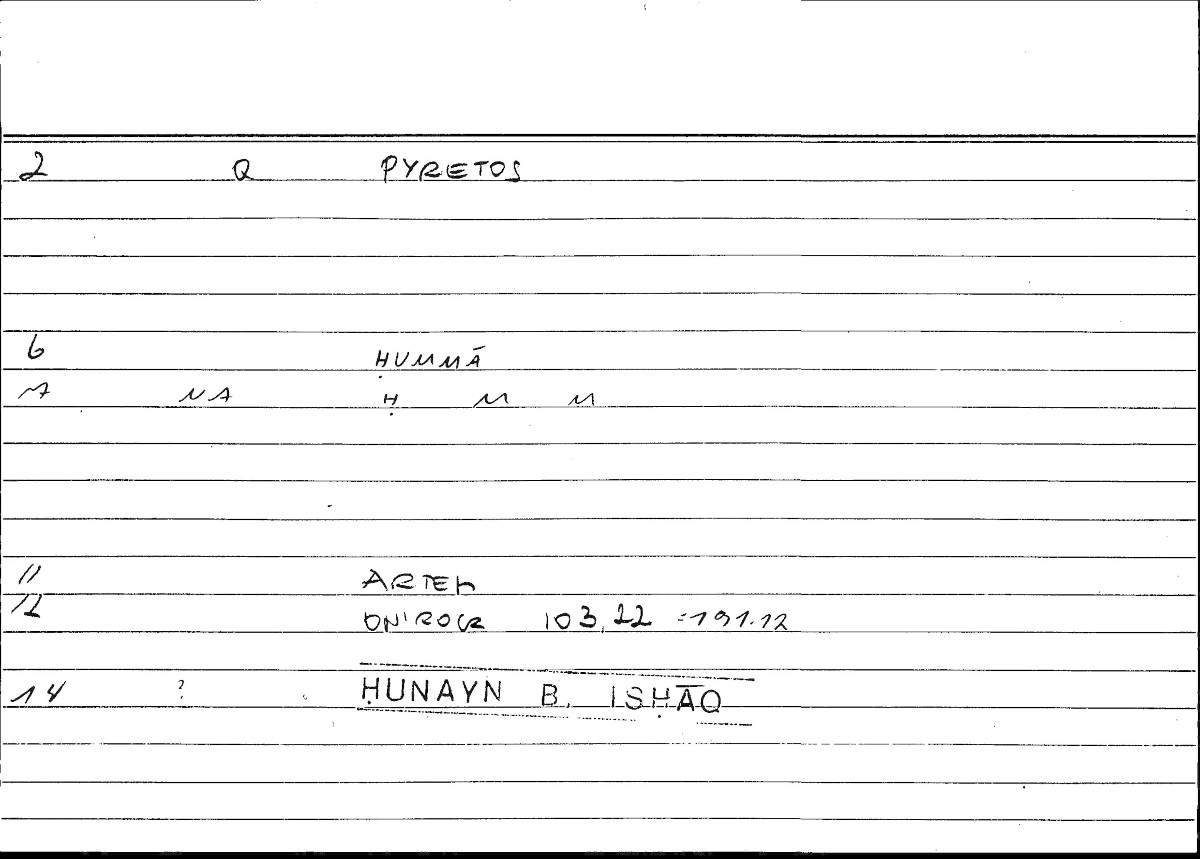 2 Q PYRETOS
6 ḤUMMĀ
7 NA Ḥ M M
11 ARTEM
12 ONIROCR 103,22 =191.12
14 ? ḤUNAYN B. ISḤĀQ